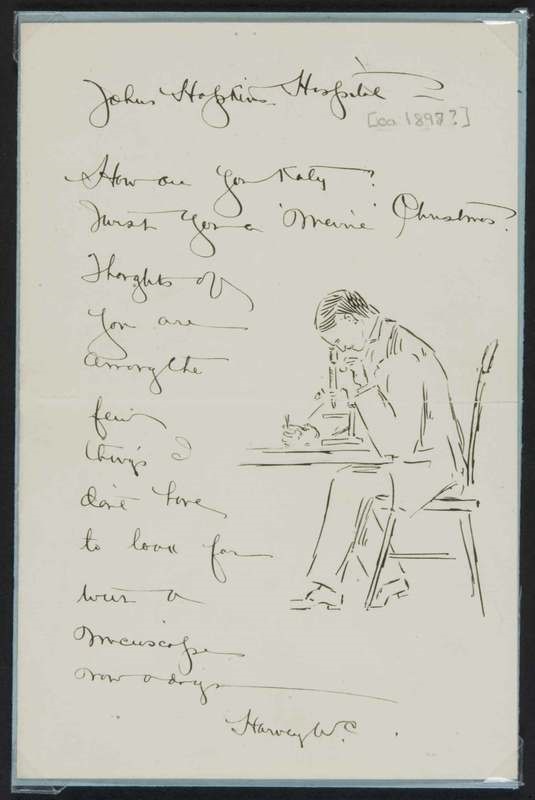 Johns Hopkins Hospital
[ca 1898?]
How are you Katy?
Wish you a 'Merrie' Christmas?
Thoughts of
you are
among the
few
things I
don't have
to look for
with a
Microscope
now a days
Harvey W. C.